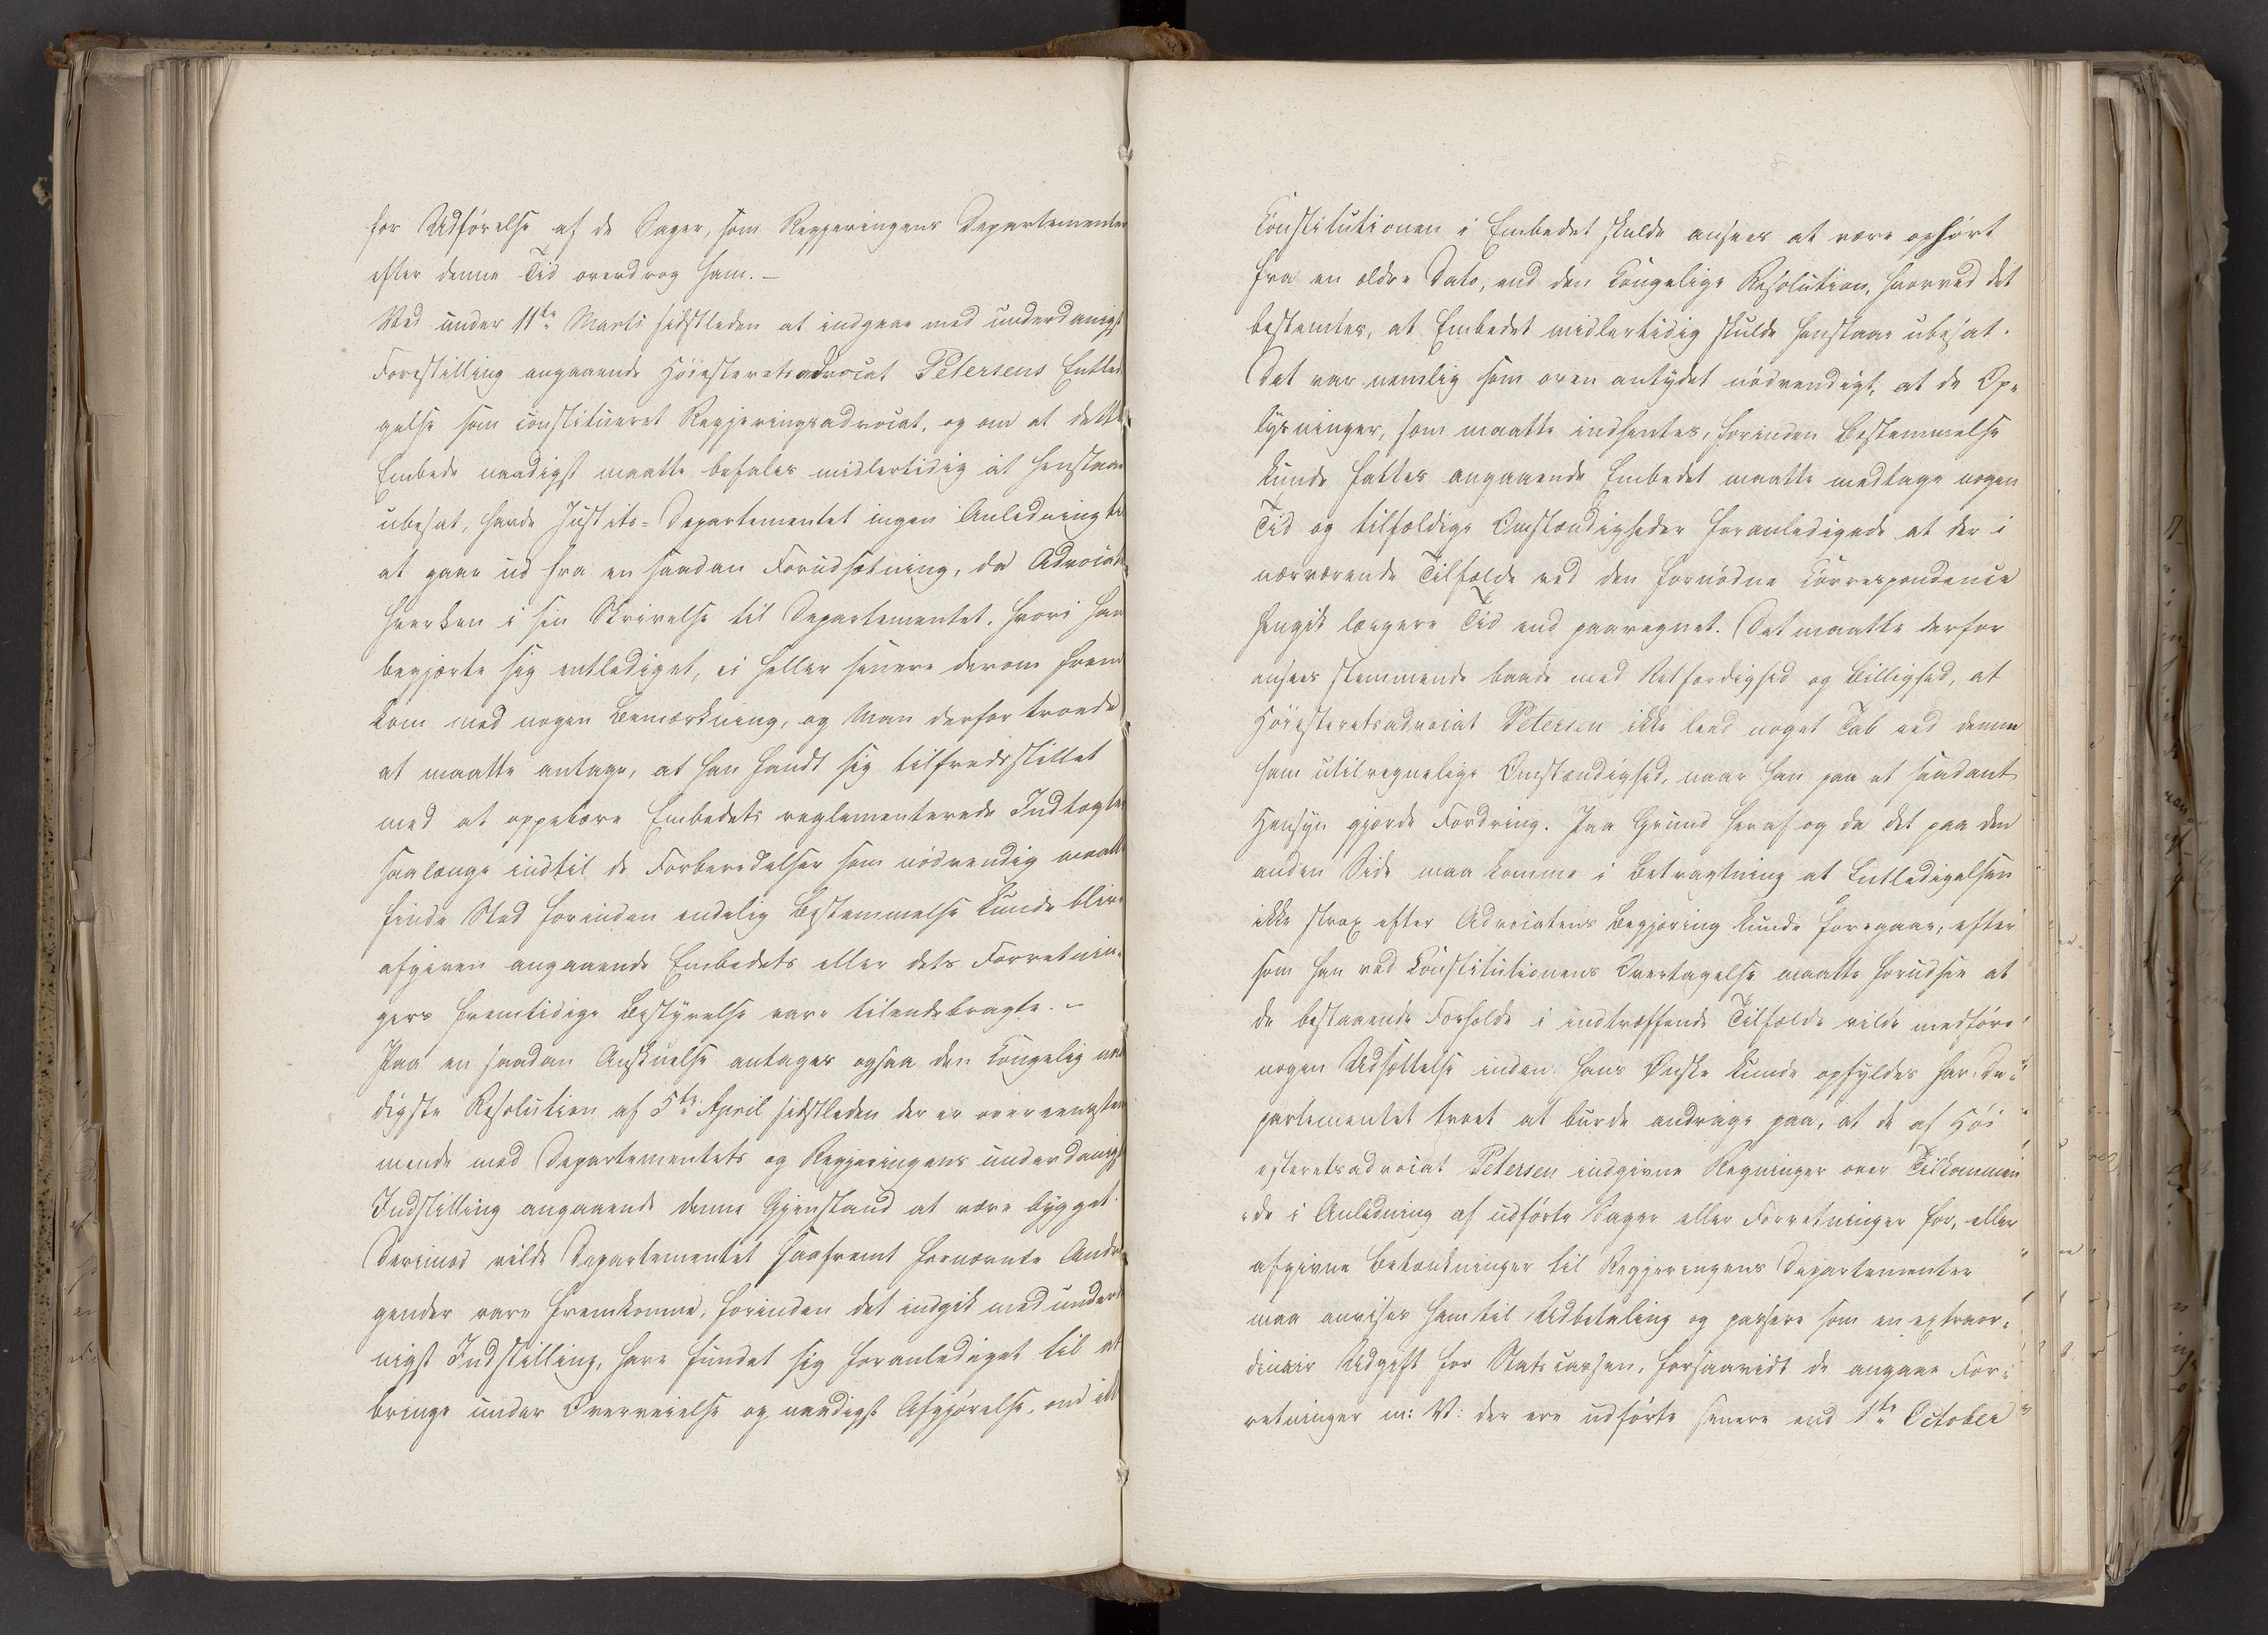 for Udførelse af de Sager, som Regjeringens Departementer
efter denne Tid overdrog ham. —
Ved under 11te Marts sidstleden at indgaae med underdanigst
Forestilling angaaende Høiesteretsadvocat Petersens Entledi
gelse som constitueret Regjeringsadvocat, og om at dette
Embede naadigst maatte befales midlertidig at henstaae
ubesat, havde Justits-Departementet ingen Anledning til
at gaae ud fra en saadan Forudsætning, da Advocaten
hverken i sin Skrivelse til Departementet, hvori han
begjærte sig entlediget, ei heller senere derom frem
kom med nogen Bemærkning, og Man derfor troede
at maatte antage, at han fandt sig tilfredsstillet
med at oppebære Embedets reglementerede Indtægter
saalænge indtil de Forberedelser som nødvendig maatte
finde Sted forinden endelig Bestemmelse kunde blive
afgiven angaaende Embedets eller dets Forretnin-
gers fremtidige Bestyrelse vare tilendebragte. —
Paa en saadan Anskuelse antages ogsaa den Kongelig naa
digste Resolution af 5te April sidstleden der er overeensstem
mende med Departementets og Regjeringens underdanigst
Indstilling angaaende denne Gjenstand at være bygget.
Derimod vilde Departementet saafremt fornævnte Andra
gender vare fremkomne, forinden det indgik med underda
nigst Indstilling, have fundet sig foranlediget til at
bringe under Overveielse og naadigst Afgjørelse, om ikke
Constitutionen i Embedet skulde ansees at være ophørt
fra en ældre Dato, end den Kongelige Resolution, hvorved det
bestemtes, at Embedet midlertidig skulde henstaae ubesat.
Det var nemlig som oven antydet nødvendigt, at de Op-
lysninger, som maatte indhentes, forinden Bestemmelse
kunde fattes angaaende Embedet maatte medtage nogen
Tid og tilfældige Omstændigheder foranledigede at der i
nærværende Tilfælde ved den fornødne Correspondence
hengik længere Tid end paaregnet. Det maatte derfor
ansees stemmende baade med Retfærdighed og Billighed, at
Høiesteretsadvocat Petersen ikke leed noget Tab ved denne
ham utilregnelige Omstændighed, naar han paa et saadant
Hensyn gjorde Fordring. Paa Grund heraf og da det paa den
anden Side maa komme i Betragtning at Entledigelsen
ikke strax efter Advocatens Begjæring kunde foregaae, efter
som han ved Constitutionens Overtagelse maatte forudsee at
de bestaaende Forholde i indtræffende Tilfælde vilde medføre
nogen Udsættelse inden hans Ønske kunde opfyldes har De-
partementet troet at burde andrage paa, at de af Høi
esteretsadvocat Petersen indgivne Regninger over Tilkommen
de i Anledning af udførte Sager eller Forretninger for, eller
afgivne Betænkninger til Regjeringens Departementer
maa anvises ham til Udbetaling og passere som en extraor-
dinair Udgift for Statscassen, forsaavidt de angaae For-
retninger m: V: der ere udførte senere end 1ste October